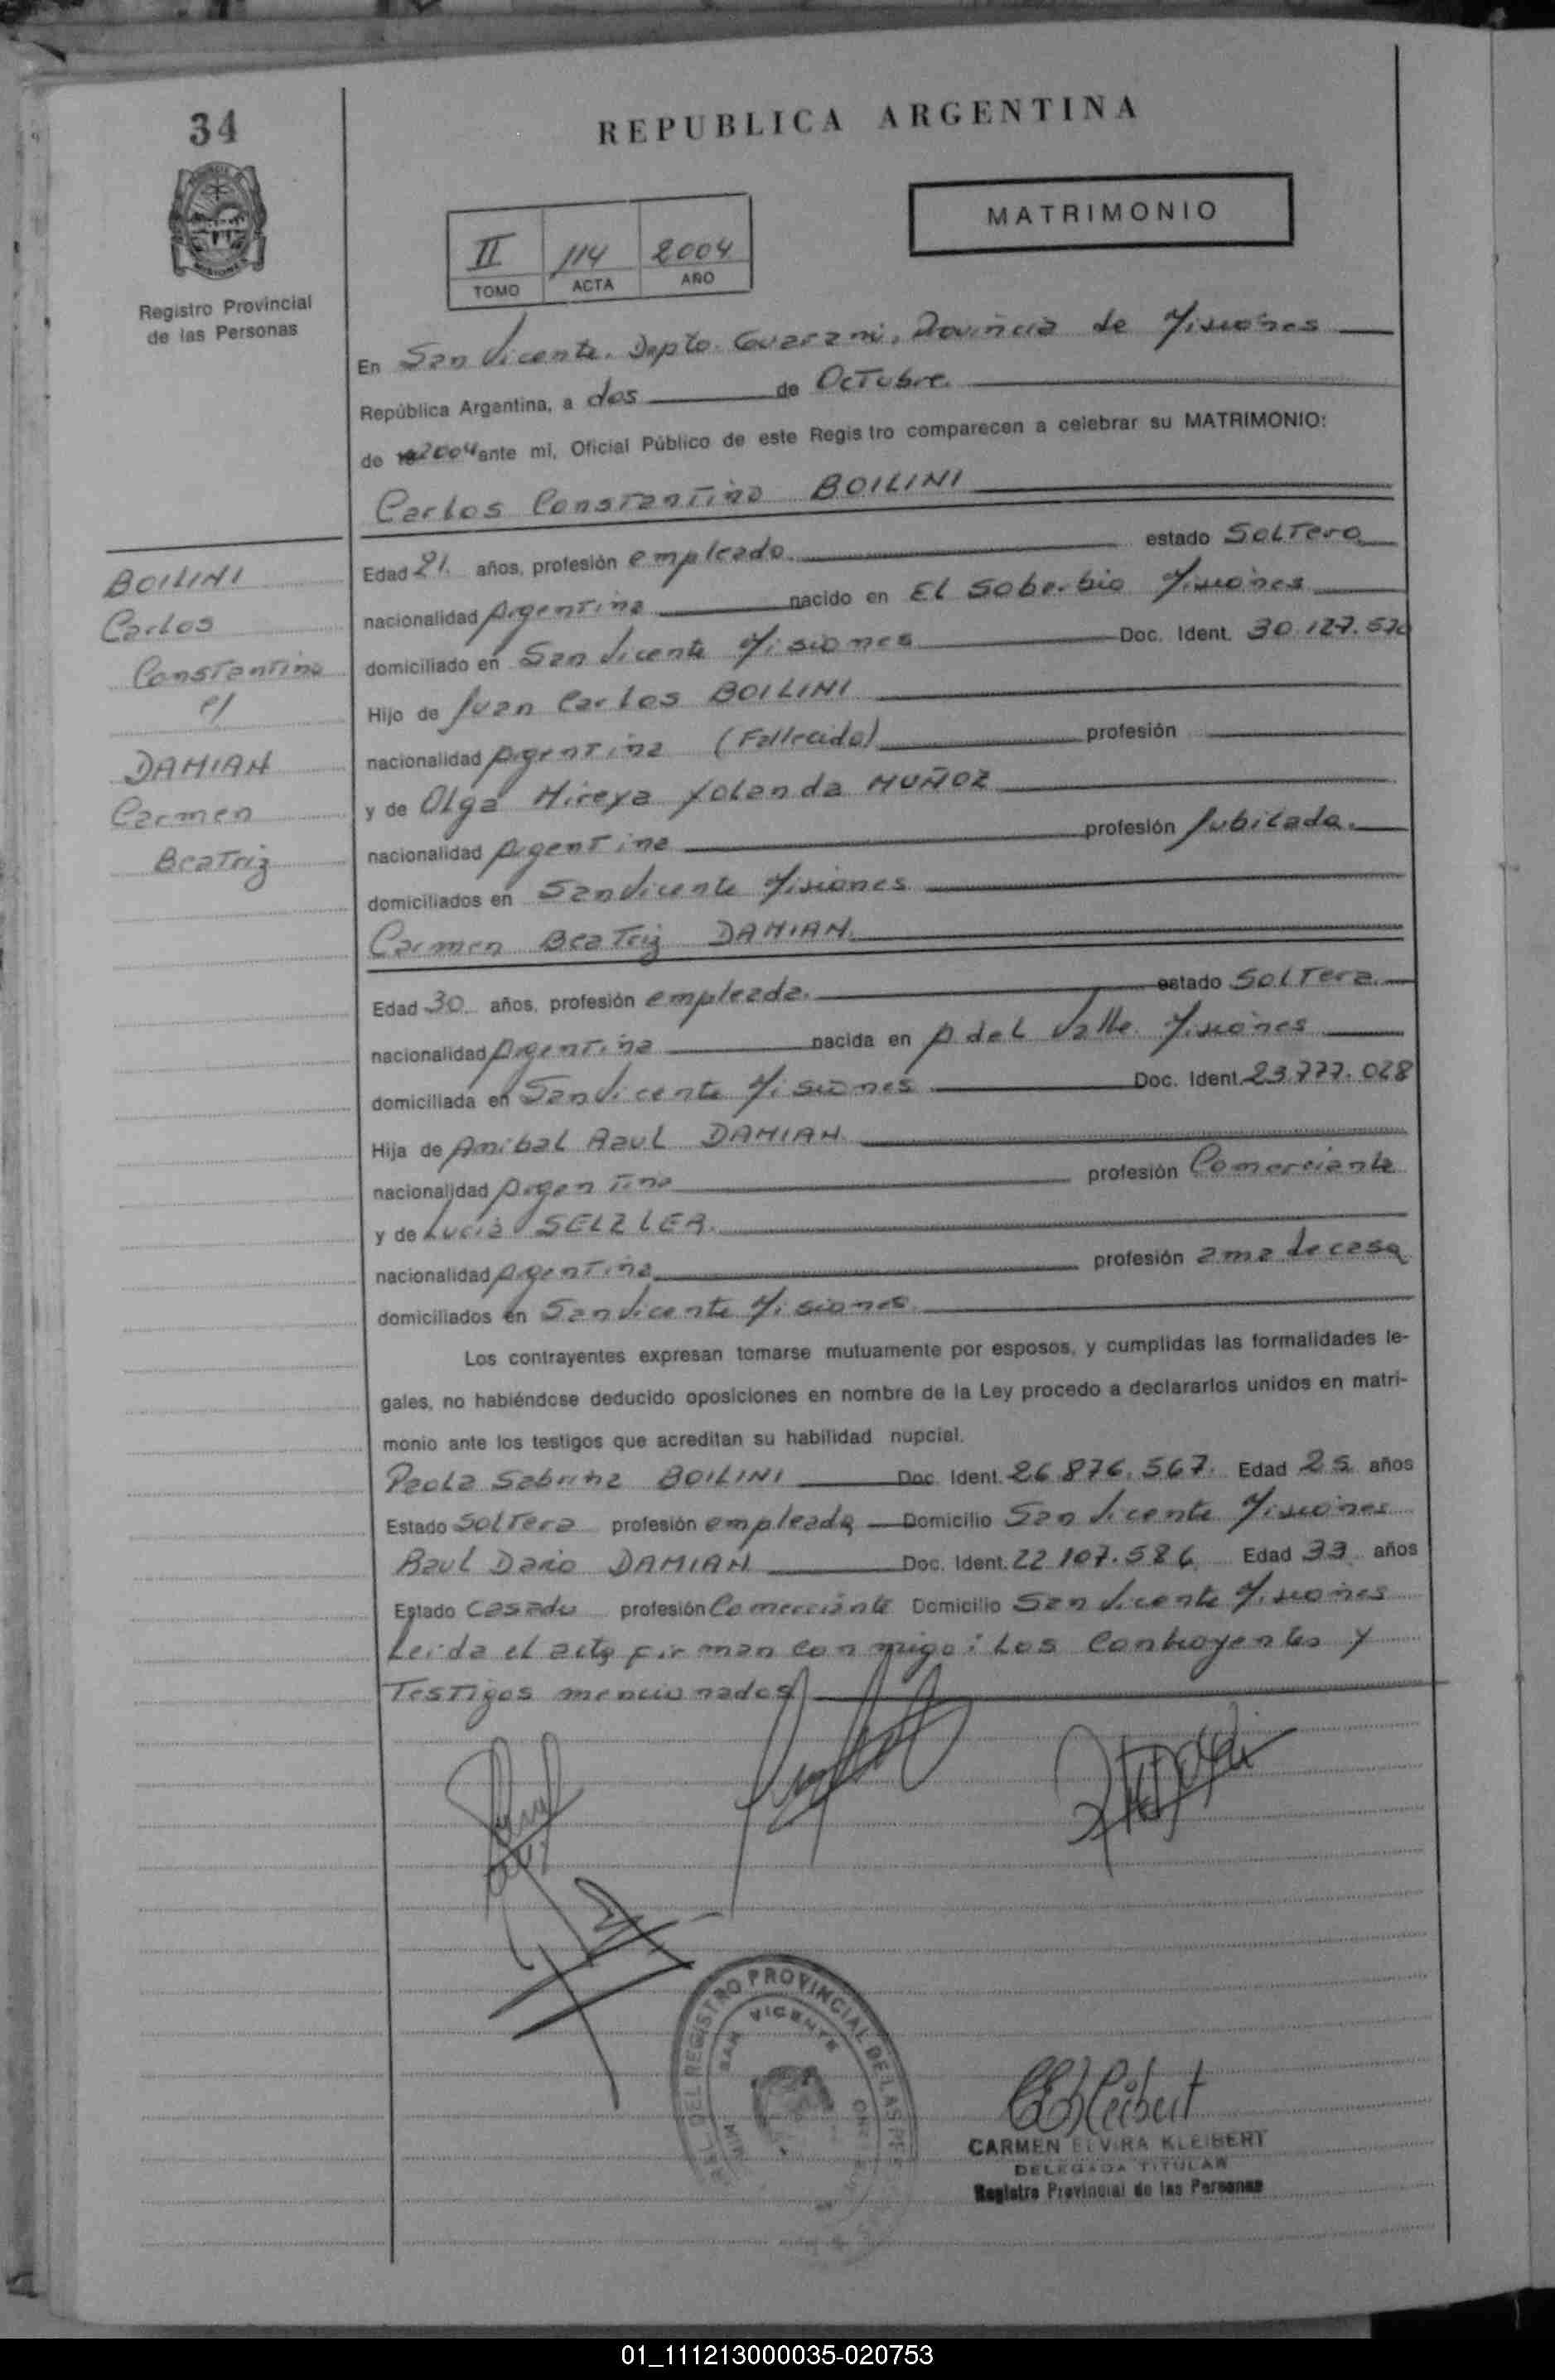 34
REPUBLICA ARGENTINA
MATRIMONIO
II 114 2004
TOMO ACTA AÑO
Registro Provincial
de las Personas
En San Vicente. Dpto. Guarani, Provincia de Misiones
República Argentina, a dos de Octubre
de 2004 ante mi, Oficial Público de este Registro comparecen a celebrar su MATRIMONIO:
Carlos Constantino BOILINI
Edad 21 años, profesión empleado estado Soltero
nacionalidad Argentina nacido en El Soberbio Misiones
domiciliado en San Vicente Misiones Doc. Ident. 30.127.570
Hijo de Juan Carlos BOILINI
nacionalidad Argentina (Fallecido) profesión
y de Olga Mireya Yolanda MUÑOZ
nacionalidad Argentina profesión Jubilada.
domiciliados en San Vicente Misiones
Carmen Beatriz DAMIAN
BOILINI
Carlos
Constantino
c/
DAMIAN
Carmen
Beatriz
Edad 30 años, profesión empleada. estado Soltera
nacionalidad Argentina nacida en A del Valle Misiones
domiciliada en San Vicente Misiones Doc. Ident. 23.777.028
Hija de Anibal Raul DAMIAN
nacionalidad Argentina profesión Comerciante
y de Lucia SELZLER.
nacionalidad Argentina profesión ama de casa
domiciliados en San Vicente Misiones
Los contrayentes expresan tomarse mutuamente por esposos, y cumplidas las formalidades le-
gales, no habiéndose deducido oposiciones en nombre de la Ley procedo a declararlos unidos en matri-
monio ante los testigos que acreditan su habilidad nupcial.
Paola Sabrina BOILINI Doc. Ident. 26.876.567. Edad 25 años
Estado Soltera profesión empleada Domicilio San Vicente Misiones
Raul Dario DAMIAN Doc. Ident. 22.107.586 Edad 33 años
Estado Casado profesión Comerciante Domicilio San Vicente Misiones
Leida el acta firman conmigo: Los Contrayentes y
Testigos mencionados
DEL REGISTRO PROVINCIAL DE LAS
SAN VICENTE
CARMEN ELVIRA KLEIBERT
DELEGADA TITULAR
Registro Provincial de las Personas
01_111213000035-020753